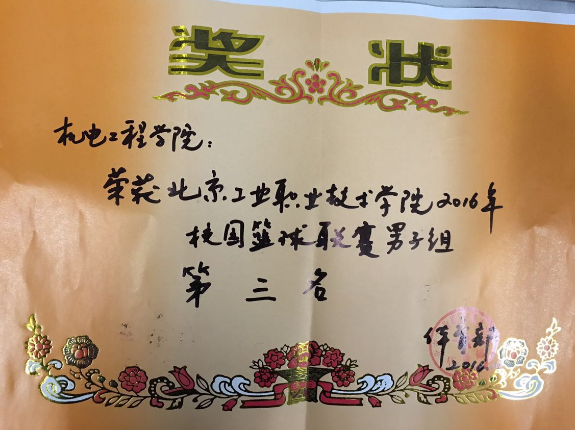 奖状
机电工程学院：
荣获北京工业职业技术学院2016年
校园篮球联赛男子组
第三名
体育部
2016